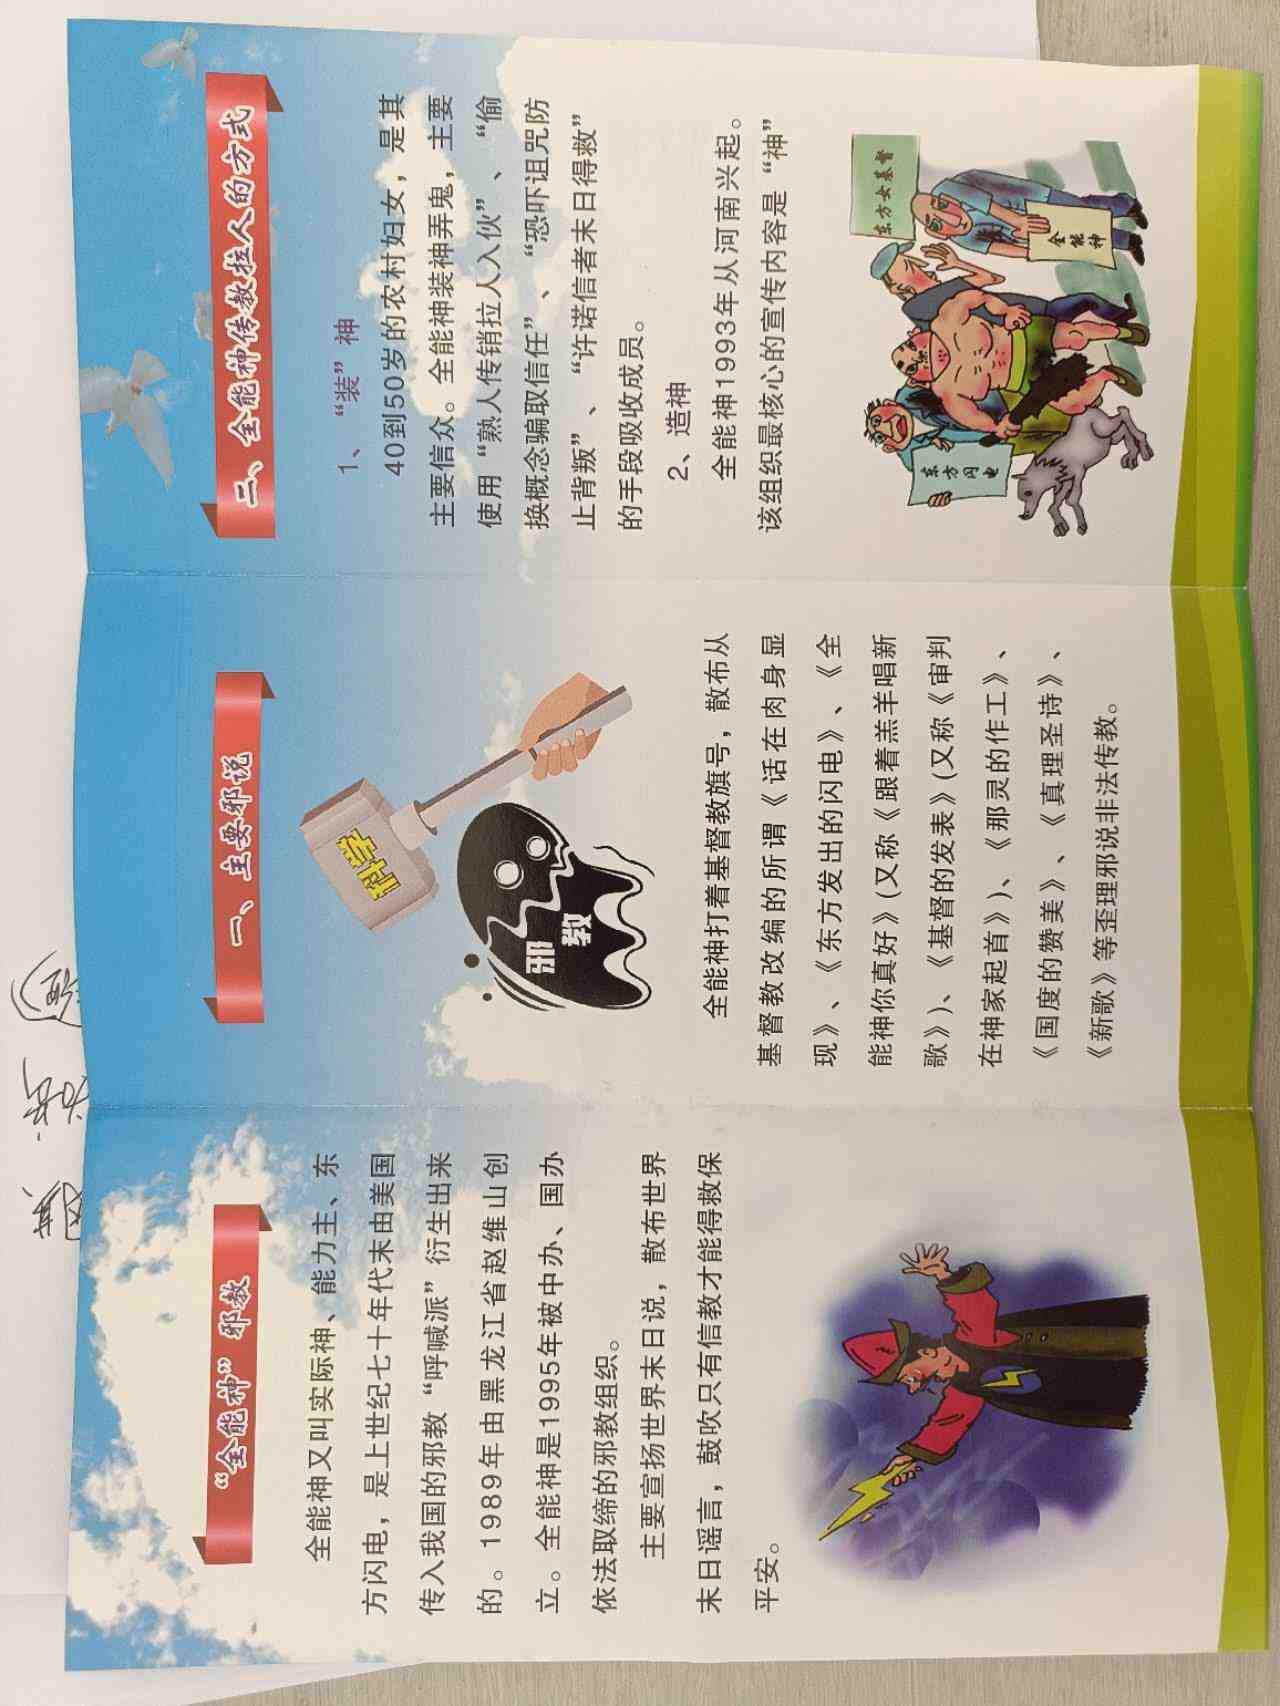 “全能神”邪教
全能神又叫实际神、能力主、东
方闪电，是上世纪七十年代末由美国
传入我国的邪教“呼喊派”衍生出来
的。1989年由黑龙江省赵维山创
立。全能神是1995年被中办、国办
依法取缔的邪教组织。
主要宣扬世界末日说，散布世界
末日谣言，鼓吹只有信教才能得救保
平安。
一、主要邪说
科学
邪教
全能神打着基督教旗号，散布从
基督教改编的所谓《话在肉身显
现》、《东方发出的闪电》、《全
能神你真好》(又称《跟着羔羊唱新
歌》)、《基督的发表》(又称《审判
在神家起首》)、《那灵的作工》、
《国度的赞美》、《真理圣诗》、
《新歌》等歪理邪说非法传教。
二、全能神传教拉人的方式
1、“装”神
40到50岁的农村妇女，是其
主要信众。全能神装神弄鬼，主要
使用“熟人传销拉人入伙”、“偷
换概念骗取信任”、“恐吓诅咒防
止背叛”、“许诺信者末日得救”
的手段吸收成员。
2、造神
全能神1993年从河南兴起。
该组织最核心的宣传内容是“神”
东方闪电
全能神
东方女基督